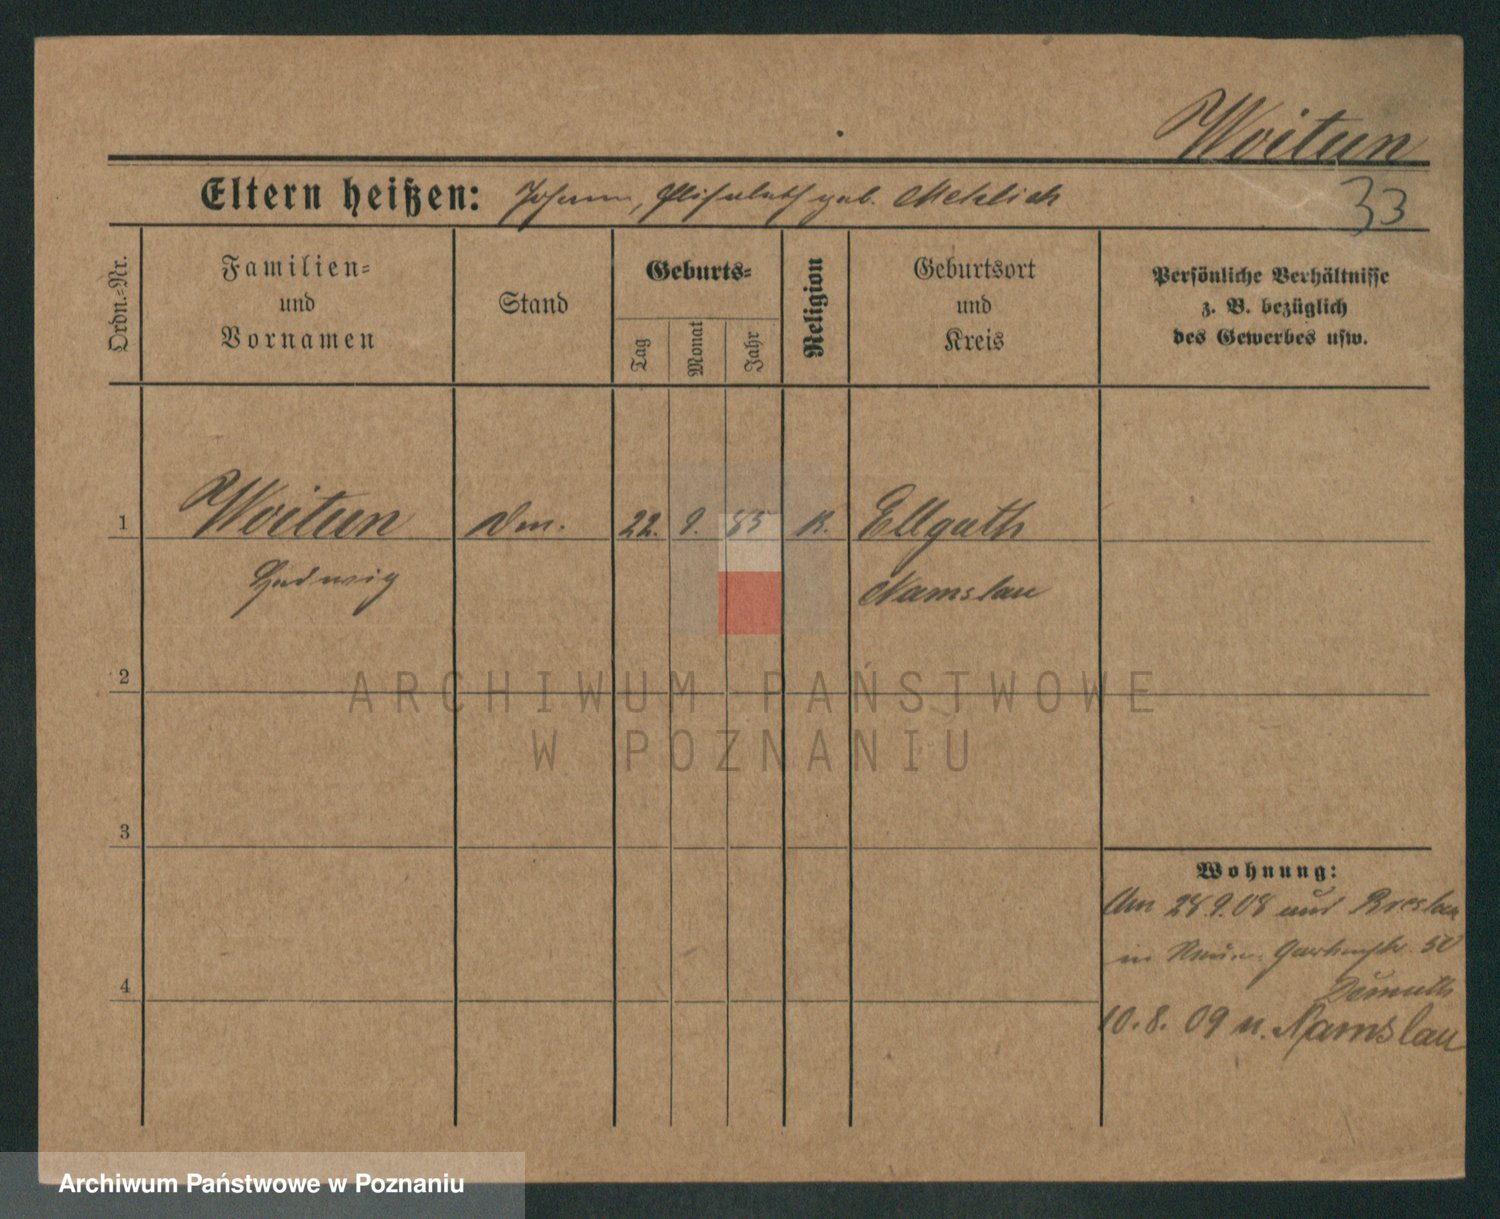 Woitun
Eltern heißen: Johann, Elisabeth geb. Mehlich
33
Ordn.-Nr.
Familien-
und
Vornamen
Stand
Geburts-
Tag
Monat
Jahr
Religion
Geburtsort
und
Kreis
Persönliche Verhältnisse
z. B. bezüglich
des Gewerbes usw.
1 Woitun 22. 9. 85 K. Ellguth
Ludwig Namslau
2
3
4
Wohnung:
Am 28.9.08 aus Breslau
in Gartenstr. 50
Demuth
10. 8. 09 n. Namslau
ARCHIWUM PAŃSTWOWE
W POZNANIU
Archiwum Państwowe w Poznaniu